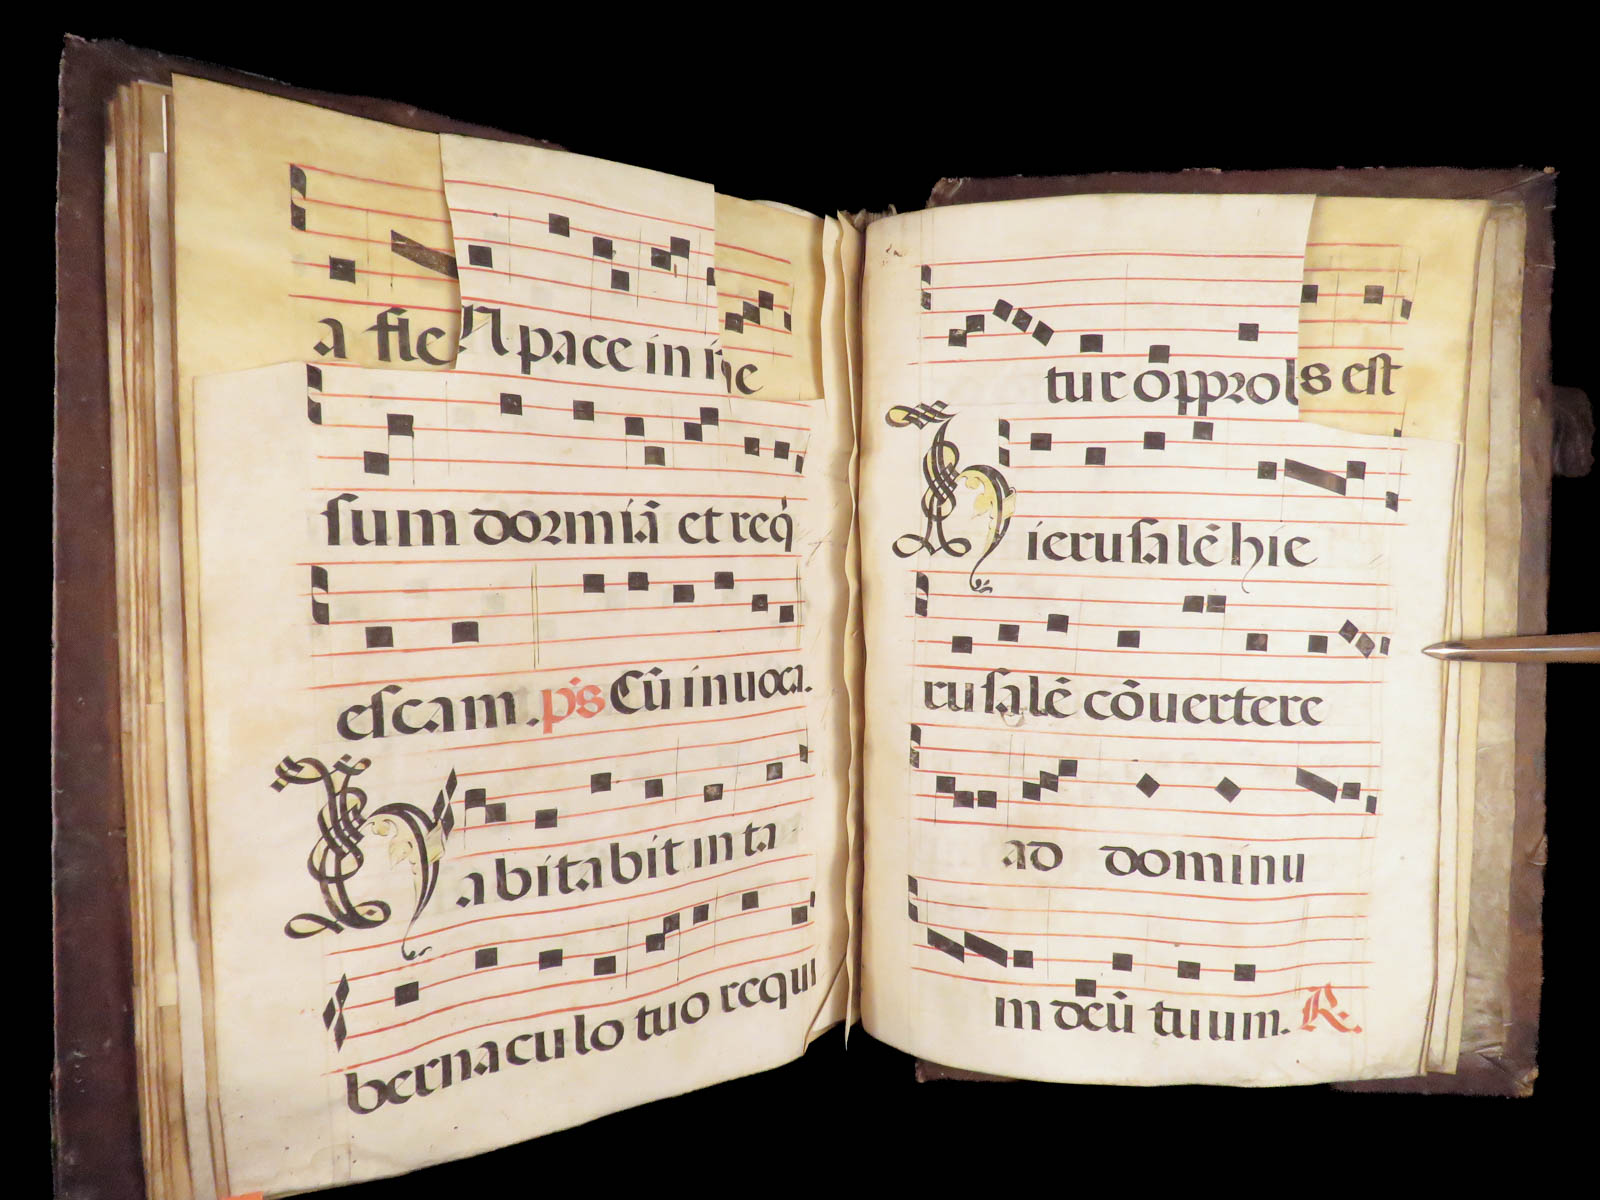 a fie N pace in i ie
sum dormiā et req̇
escam. p̄s Cū inuoca.
Habitabit in ta
bernaculo tuo requi
tur opprob s est
Hierusalē hie
rusalē cōuertere
ad dominu
m deū tuum. R.